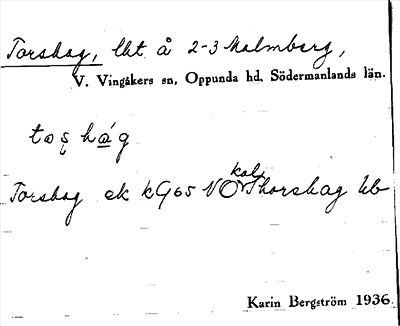 Torshag, lht å 2-3 Malmberg,
V. Vingåkers sn, Oppunda hd, Södermanlands län.
toʂ hág
kal
Torshag ek kG65 NO Thorshag hb
Karin Bergström 1936.